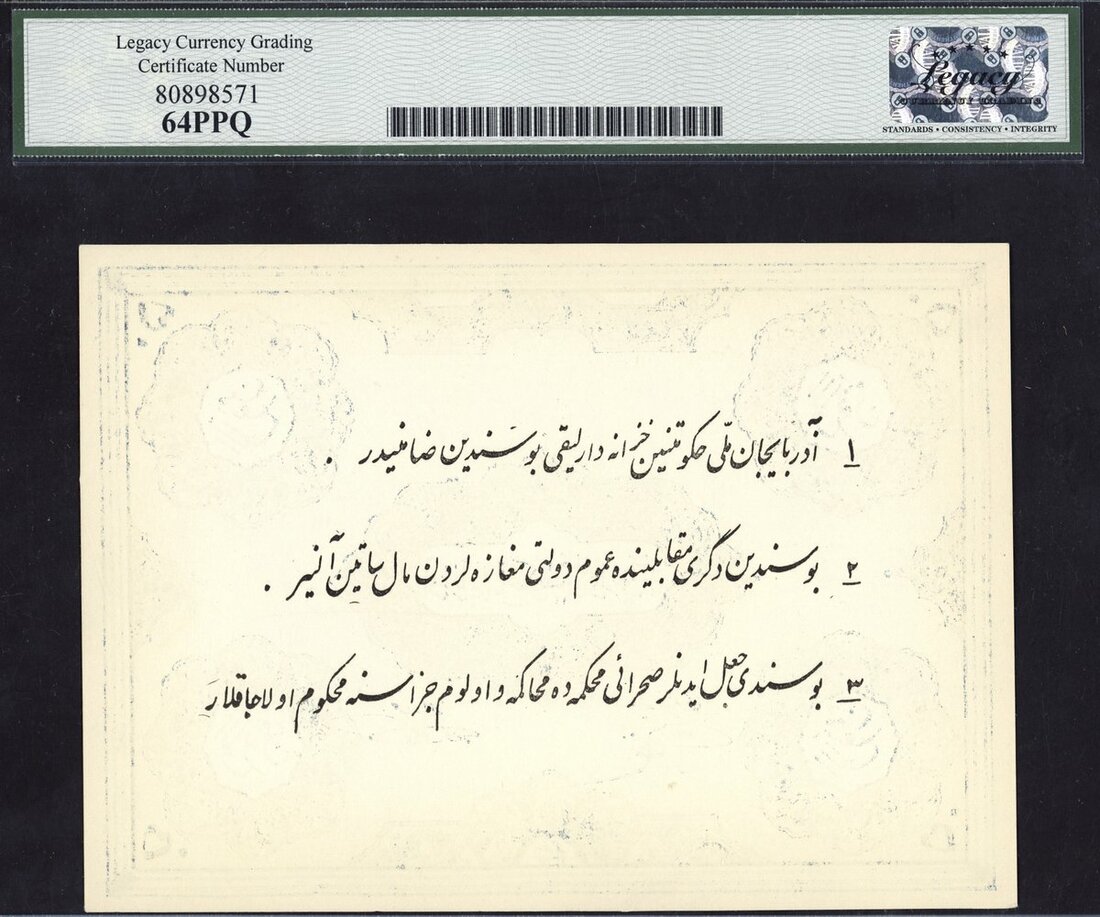 Legacy Currency Grading
Certificate Number
80898571
64PPQ
Legacy
CURRENCY GRADING
STANDARDS • CONSISTENCY • INTEGRITY
۱ آذربایجان ملّی حکومتنین خزانه دارلیقی بو سَندین ضامنیدر .
۲ بو سندین دگری مقابلینده عموم دولتی مغازه لردن مال ساتین آلنیر .
۳ بو سندی جعل ایدنلر صحرائی محکمه ده محاکمه و اولوم جزاسنه محکوم اولاجاقلار